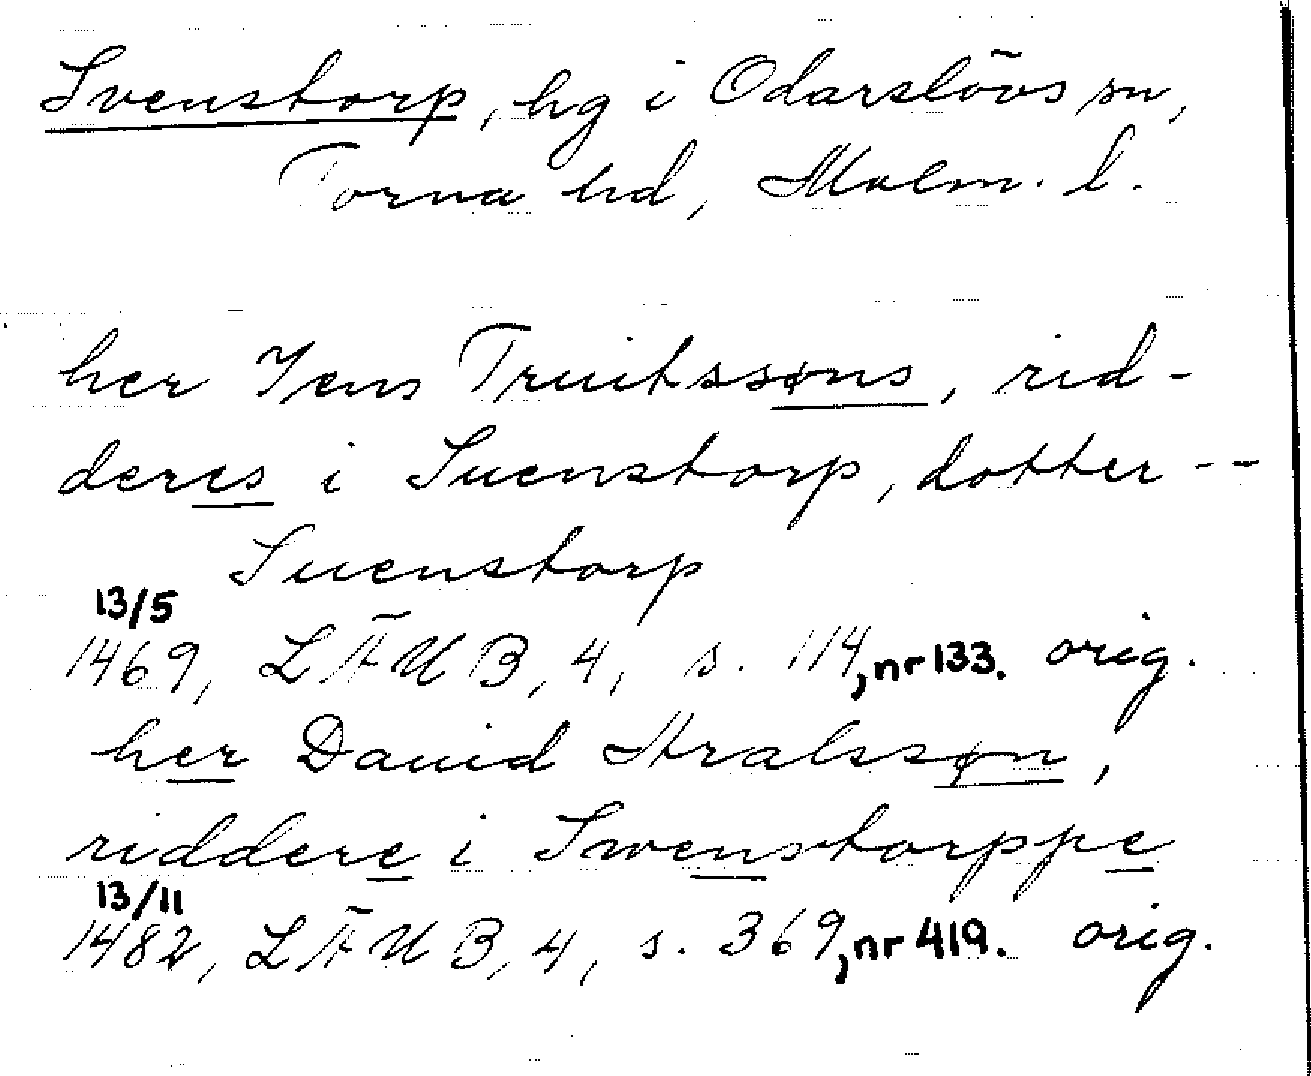 Svenstorp, hg i Odarslövs sn,
Torna hd, Malm. l.
her Jens Truitssøns, rid-
deres i Suenstorp, dotter --
Suenstorp
13/5
1469, LÄUB, 4, s. 114, nr 133. orig.
her Dauid Hralssøn,
riddere i Swenstorppe
13/11
1482, LÄUB, 4, s. 369, nr 419. orig.